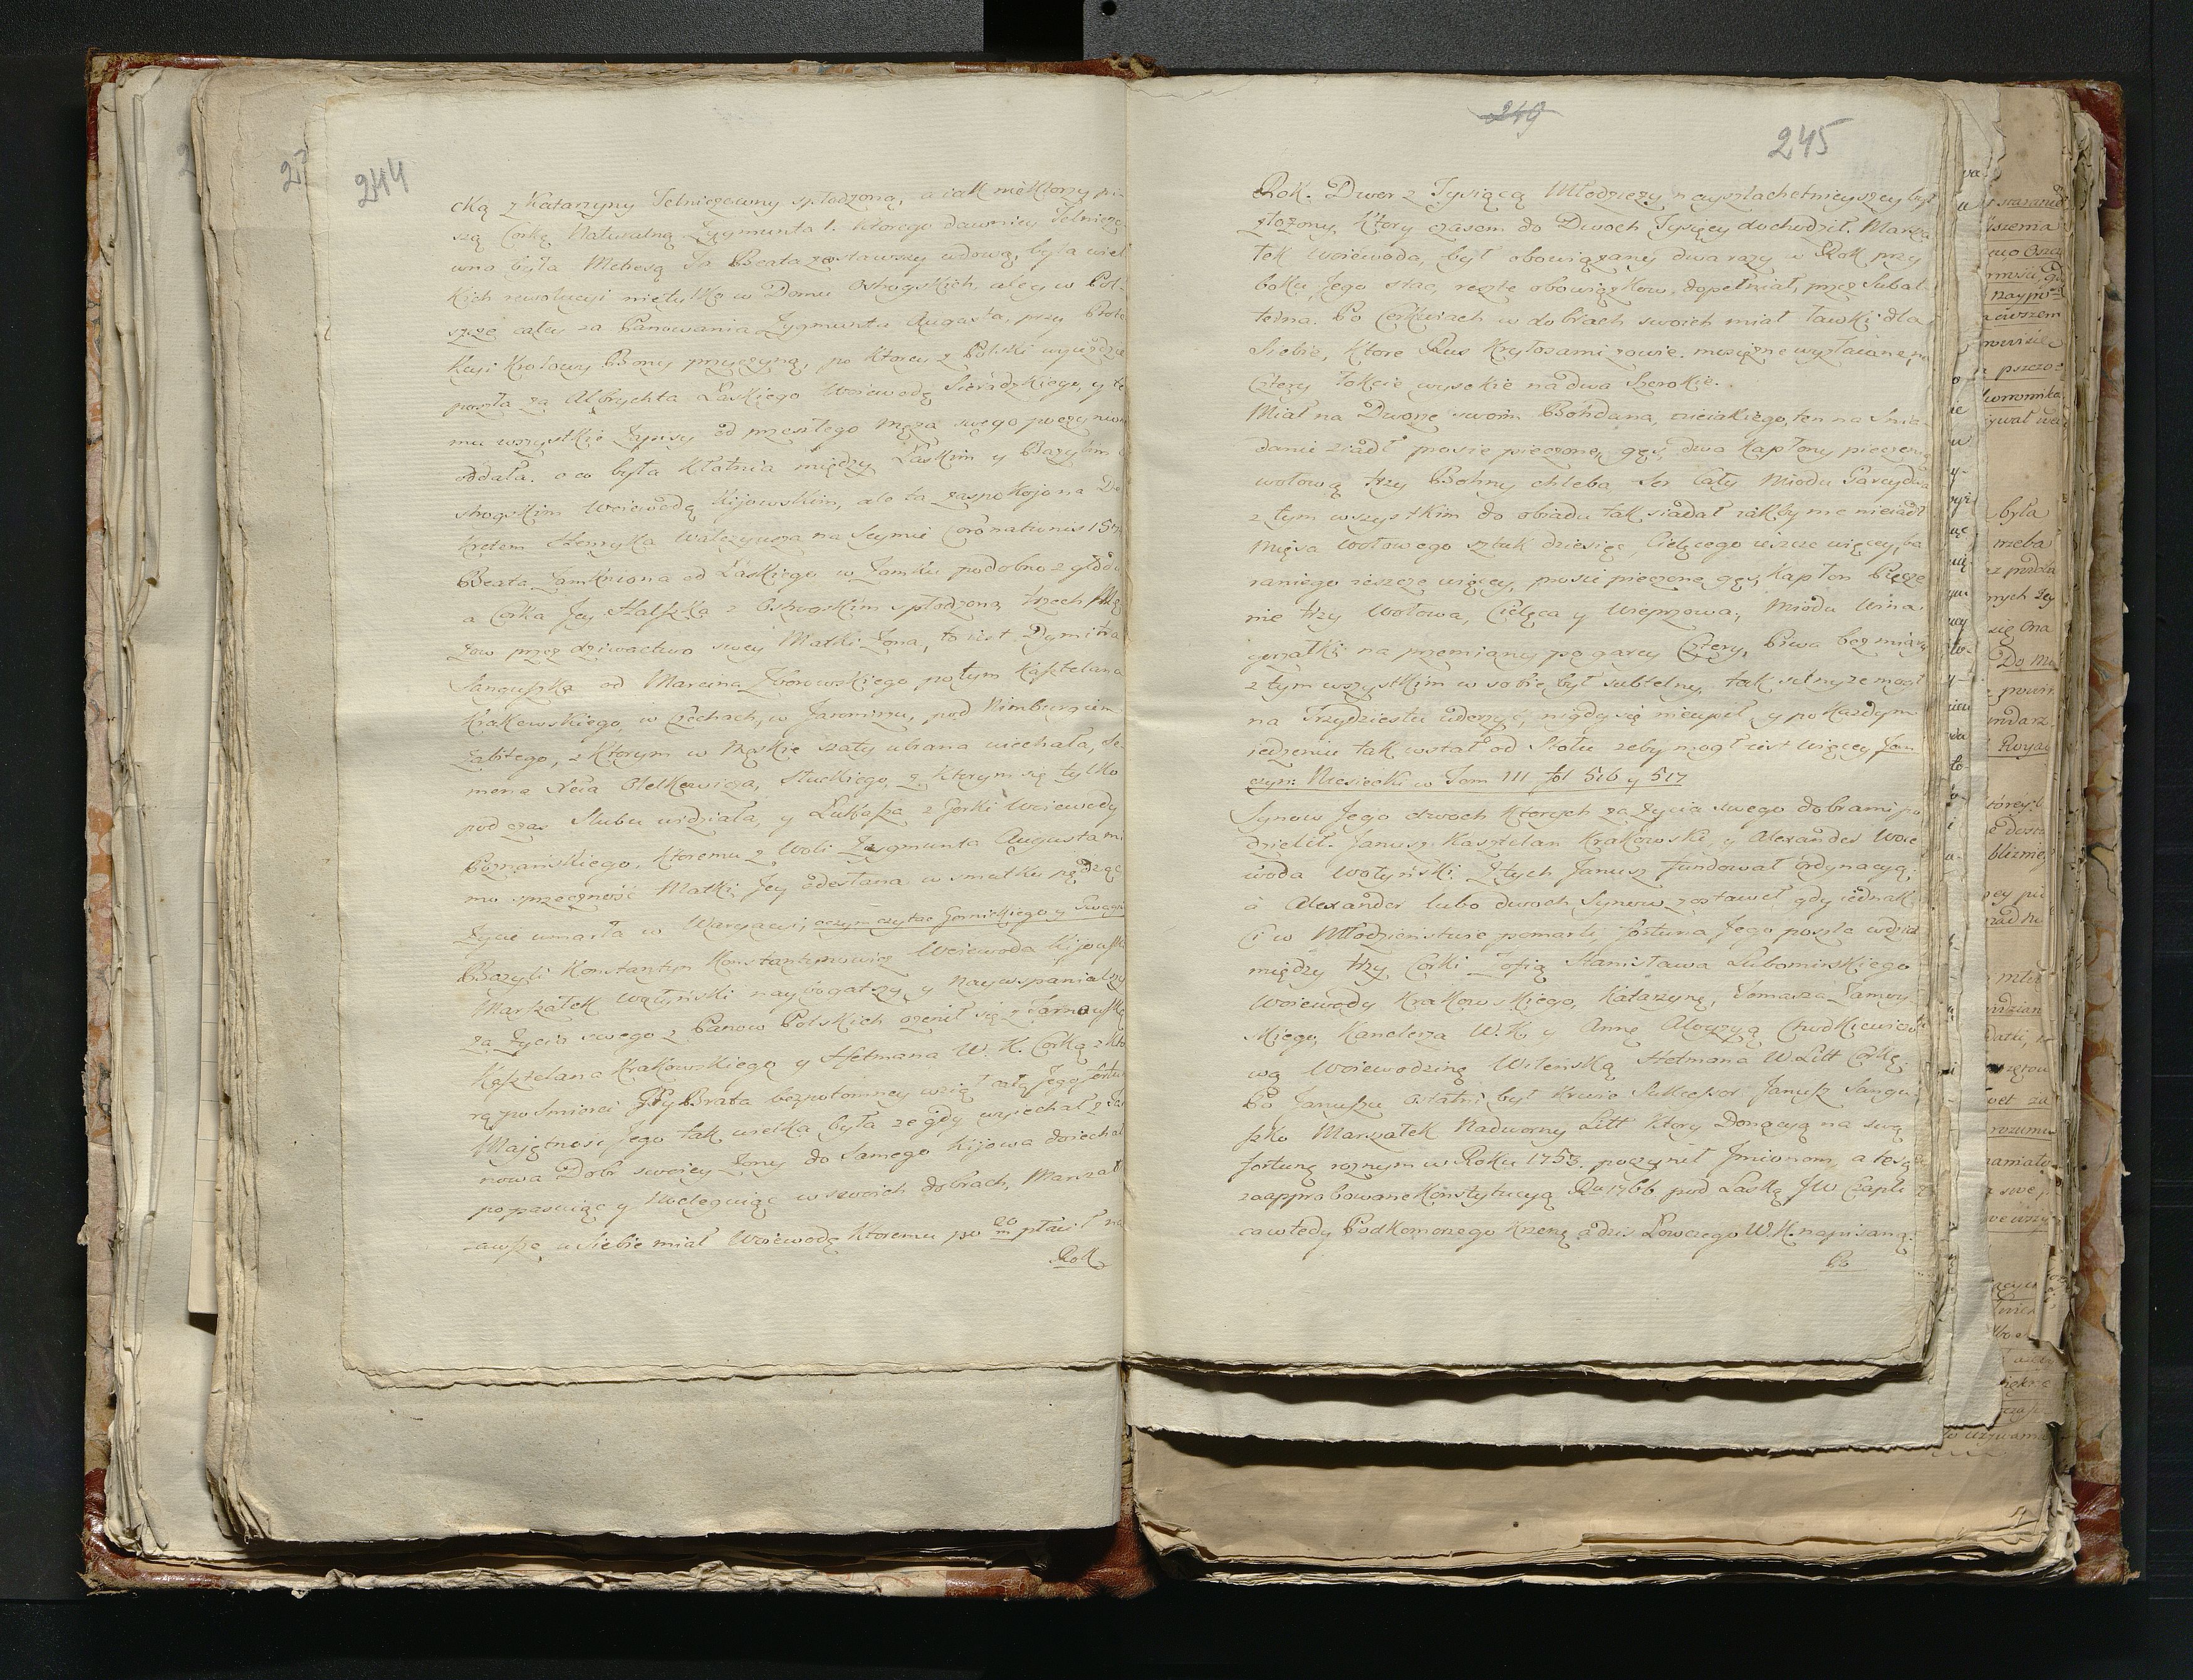 244
cką z Katarzyny Telniczewny spłodzoną, a iak niektorzy pi-
szą Corkę Naturalną Zygmunta I. ktorego dawniey Telnicze
wna była Metressą Ta Beata zostawszy wdową, była wiel
kich rewolucyi nietylko w Domu Ostrogskich, ale y w Pol-
szcze całey za Panowania Zygmunta Augusta, przy Prote
kcyi Krolowy Bony przyczyną, po ktorey z Polski wyieździe
poszła za Albrychta Łaskiego Woiewodę Sieradzkiego, y te
mu wszystkie Zapisy od przeszłego Męża swego poczynion
oddała. o co była Kłotnia między Łaskim y Bazylim O
strogskim Woiewodą Kijowskim, ale ta zaspokojona De
kretem Henryka Walezyusza na Seymie Coronationis 157
Beata Zamkniona od Łaskiego w Zamku podobno z głodu
a Corka Jey Halszka z Ostrogskim spłodzona, trzech Mę
zow przez dziwactwo swey Matki Zona, to iest Dymitra
Sanguszka od Marcina Zborowskiego potym Kasztelana
Krakowskiego, w Czechach, w Jaromirzu, pod Nimburgiem
zabitego, z ktorym w Męskie szaty ubrana uiechała, Se-
mena Xcia Olelkowicza, Słuckiego, z ktorym się tylko
podczas Slubu widziała, y Łukasza z Gorki Woiewody
Poznańskiego, ktoremu z Woli Zygmunta Augusta mi
mo sprzeczność Matki Jey odesłana w smutku pędząc
Zycie umarła w Waryacyi, oczym czytac Gornickiego y Swego
Bazyli Konstantyn Konstantynowicz Woiewoda Kijowsk
Marszałek Wołyński naybogatszy y Naywspanialszy
za Zycia swego z Panow Polskich ozenił się z Tarnowską
Kasztelana Krakowskiego y Hetmana W. K. Corką z kto
rą po Smierci Jey Brata bezpotomney wziął całą Jego fortu
Majętnosc Jego tak wielka była ze gdy wyiechał z Tar
nowa Dobr swoiey Zony do Samego Kijowa doiechał
popasaiąc y Nocleguiąc w swoich dobrach, Marszał
zawsze u Siebie miał Woiewodę ktoremu po 20 m płacił na
Rok
249
245
Rok. Dwor z Tysiącą Młodziezy nayszlachetnieyszey był
złozony, ktory czasem do Dwoch Tysięcy dochodził. Marsza
łek Woiewoda, był obowiązany dwa razy w Rok przy
boku Jego stac, resztę obowiązkow dopełniał, przez Subal
terna. Po Cerkwiach w dobrach swoich miał ławki dla
Siebie, ktore Rus Kryłosami zowie. mosięzne wyzłacane, na
Cztery łokcie wysokie na dwa Szerokie.
Miał na Dworze swoim Bohdana, nieiakiego, ten na Snia
danie ziadł prosie pieczone, gęś, dwa Kapłony pieczenią
wołową trzy Bohny chleba Ser Cały Miodu Garcy dwa
z tym wszystkim do obiadu tak siadał iakby nic nieiadł
Mięsa Wołowego sztuk dziesięć, Cielęcego ieszcze więcey, ba
raniego ieszcze więcey, prosie pieczone gęś, Kapłon Piecze
nie trzy Wołowa, Cielęca y Wieprzowa, Miodu Wina
gorzałki na przemiany po garcy Cztery, Piwa bez miary
z tym wszystkim w sobie był subtelny, tak silny ze mogł
na Trzydziestu uderzyć, nigdy się nieupił, y po kazdym
iedzeniu tak wstał od Stołu zeby mogł iesć więcey
Niesiecki w Tom III fol 516 y 517
Synow Jego dwoch ktorych za zycia swego dobrami po
dzielił. Janusz Kasztelan Krakowski, y Alexander Woie
woda Wołyński. Z tych Janusz fundował ordynacyą,
a Alexander lubo dwoch Synow zostawił gdy iednak
Ci w Młodzieństwie pomarli, fortuna Jego poszła w dział
między trzy Corki Zofią Stanisława Lubomirskiego
Woiewody Krakowskiego, Katarzynę, Tomasza Zamoy-
skiego, Kanclerza W. K. y Annę Aloyzyą Chodkiewiczo
wą Woiewodzinę Wileńską Hetmana W Litt Corkę.
Po Januszu ostatni był Krwie Sukcessor Janusz Sangu-
szko Marszałek Nadworny Litt ktory Donacyą na swą
fortunę roznym w Roku 1753. poczynił Jmionom, a te są
zaapprobowane Konstytucyą Ru 1766 pod Laską JW Czapli
ca wtedy Podkomorzego Krzem: a dzis Łowczego W.K. napisaną.
Po